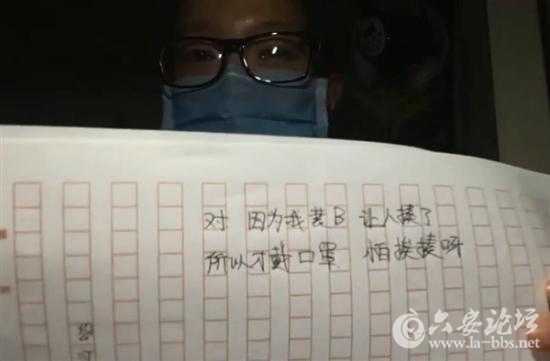 对 因为我装B 让人揍了
所以才戴口罩 怕挨揍呀
六安论坛
www.la-bbs.net